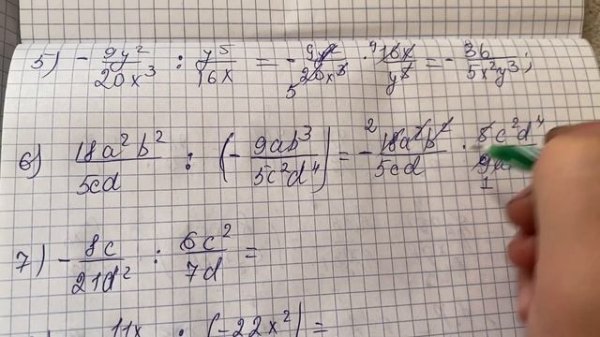 5) - 9y²/20x³ : y⁵/16x = - 9y²/20x³ · 16x/y⁵ = - 36/5x²y³;
6) 18a²b²/5cd : (- 9ab³/5c²d⁴) = - 18a²b²/5cd · 5c²d⁴
7) - 8c/21d² : 6c²/7d =
11x : (-22x²) =